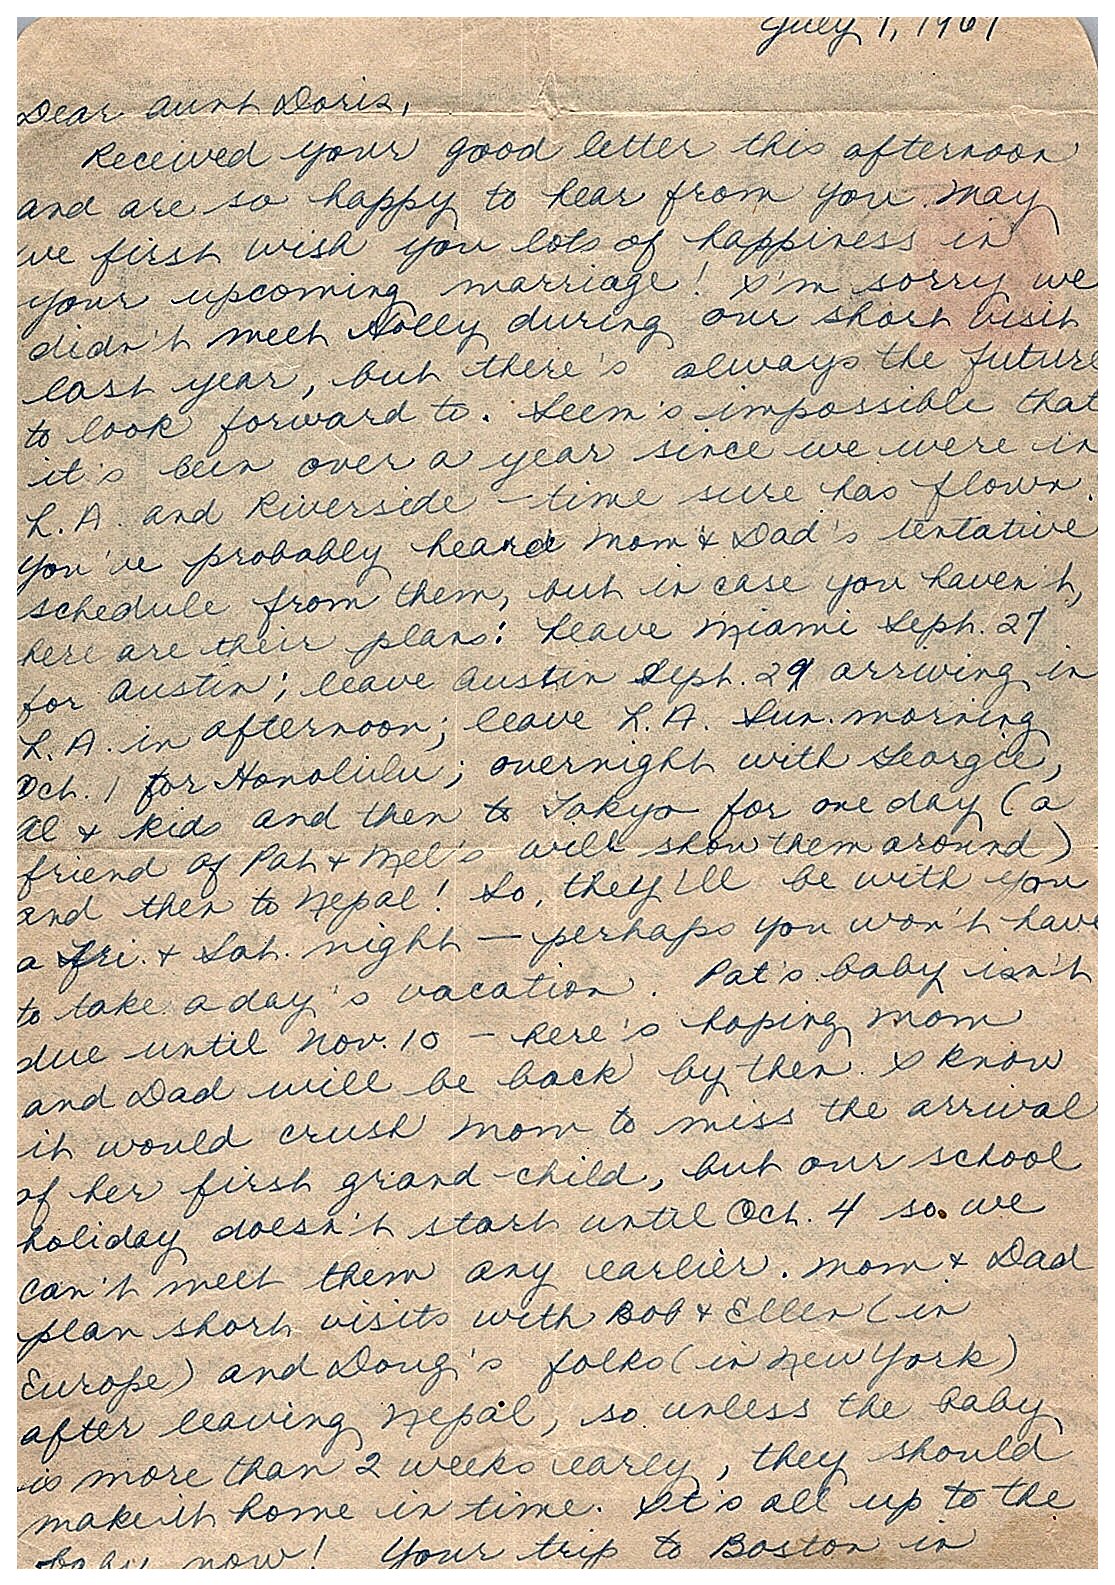 July 1, 1967
Dear Aunt Doris,
Received your good letter this afternoon
and are so happy to hear from you. May
we first wish you lots of happiness in
your upcoming marriage! I'm sorry we
didn't meet Holly during our short visit
last year, but there's always the future
to look forward to. Seem's impossible that
it's been over a year since we were in
L.A. and Riverside - time sure has flown.
You've probably heard Mom & Dad's tentative
schedule from them, but in case you haven't,
here are their plans: Leave Miami Sept. 27
for Austin; leave Austin Sept. 29 arriving in
L.A. in afternoon; leave L.A. Sun. morning
Oct. 1 for Honolulu; overnight with Georgie,
Al & kids and then to Tokyo for one day (a
friend of Pat & Mel's will show them around)
and then to Nepal! So, they'll be with you
a Fri. & Sat. night — perhaps you won't have
to take a day's vacation. Pat's baby isn't
due until Nov. 10 - here's hoping Mom
and Dad will be back by then. I know
it would crush Mom to miss the arrival
of her first grand-child, but our school
holiday doesn't start until Oct. 4 so we
can't meet them any earlier. Mom & Dad
plan short visits with Bob & Ellen (in
Europe) and Doug's folks (in New York)
after leaving Nepal, so unless the baby
is more than 2 weeks early, they should
make it home in time. It's all up to the
baby now! Your trip to Boston in